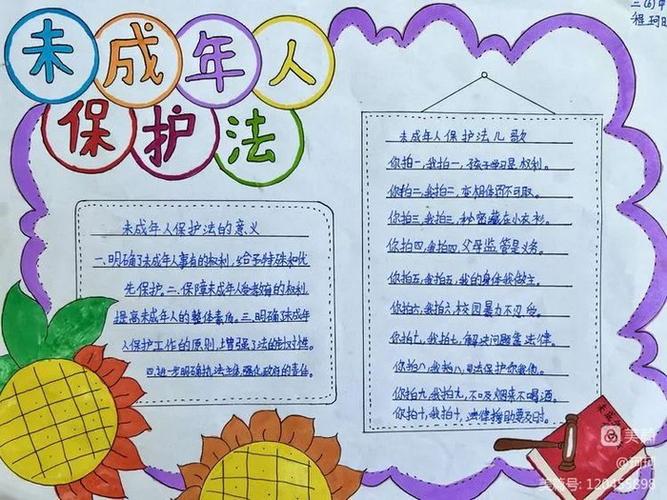 未成年人
保护法
三(6)中
程珂
未成年人保护法的意义
一、明确了未成年人享有的权利,给予特殊如优
先保护。二、保障未成年人受教育的权利
提高未成年人的整体素质。三、明确未成年
人保护工作的原则,增强了法的针对性。
四、进一步明确执法主体,强化政府的责任。
未成年人保护法儿歌
你拍一,我拍一,孩子学习是权利。
你拍二,我拍二,变相体罚不可取。
你拍三,我拍三,秘密藏在小衣衫。
你拍四,我拍四,父母监管是义务。
你拍五,我拍五,我的身体我做主。
你拍六,我拍六,校园暴力不可留。
你拍七,我拍七,解决问题靠法律。
你拍八,我拍八,司法保护你我他。
你拍九,我拍九,不吸烟来不喝酒。
你拍十,我拍十,法律援助要及时。
美篇
美篇号: 120455898